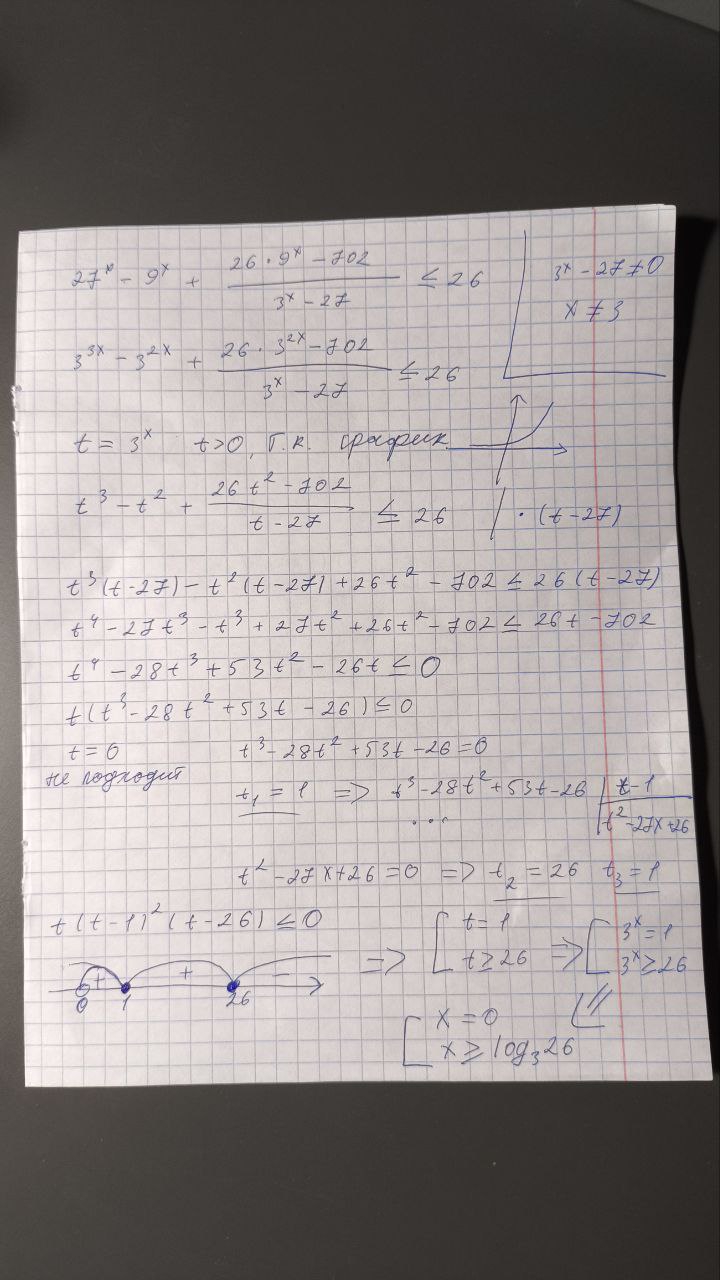 27^x - 9^x + (26 · 9^x - 702)/(3^x - 27) ≤ 26
3^x - 27 ≠ 0
x ≠ 3
3^{3x} - 3^{2x} + (26 · 3^{2x} - 702)/(3^x - 27) ≤ 26
t = 3^x t>0, т.к. график
t^3 - t^2 + (26t^2 - 702)/(t - 27) ≤ 26 | · (t - 27)
t^3(t-27) - t^2(t-27) + 26t^2 - 702 ≤ 26(t-27)
t^4 - 27t^3 - t^3 + 27t^2 + 26t^2 - 702 ≤ 26t - 702
t^4 - 28t^3 + 53t^2 - 26t ≤ 0
t(t^3 - 28t^2 + 53t - 26) ≤ 0
t = 0 t^3 - 28t^2 + 53t - 26 = 0
не подходит
t_1 = 1 => t^3 - 28t^2 + 53t - 26 | t - 1
... t^2 - 27x + 26
t^2 - 27x + 26 = 0 => t_2 = 26 t_3 = 1
t(t-1)^2(t-26) ≤ 0
+ + -
0 1 26
=> [ t = 1
t ≥ 26
=> [ 3^x = 1
3^x ≥ 26
[ x = 0
x ≥ log_3 26